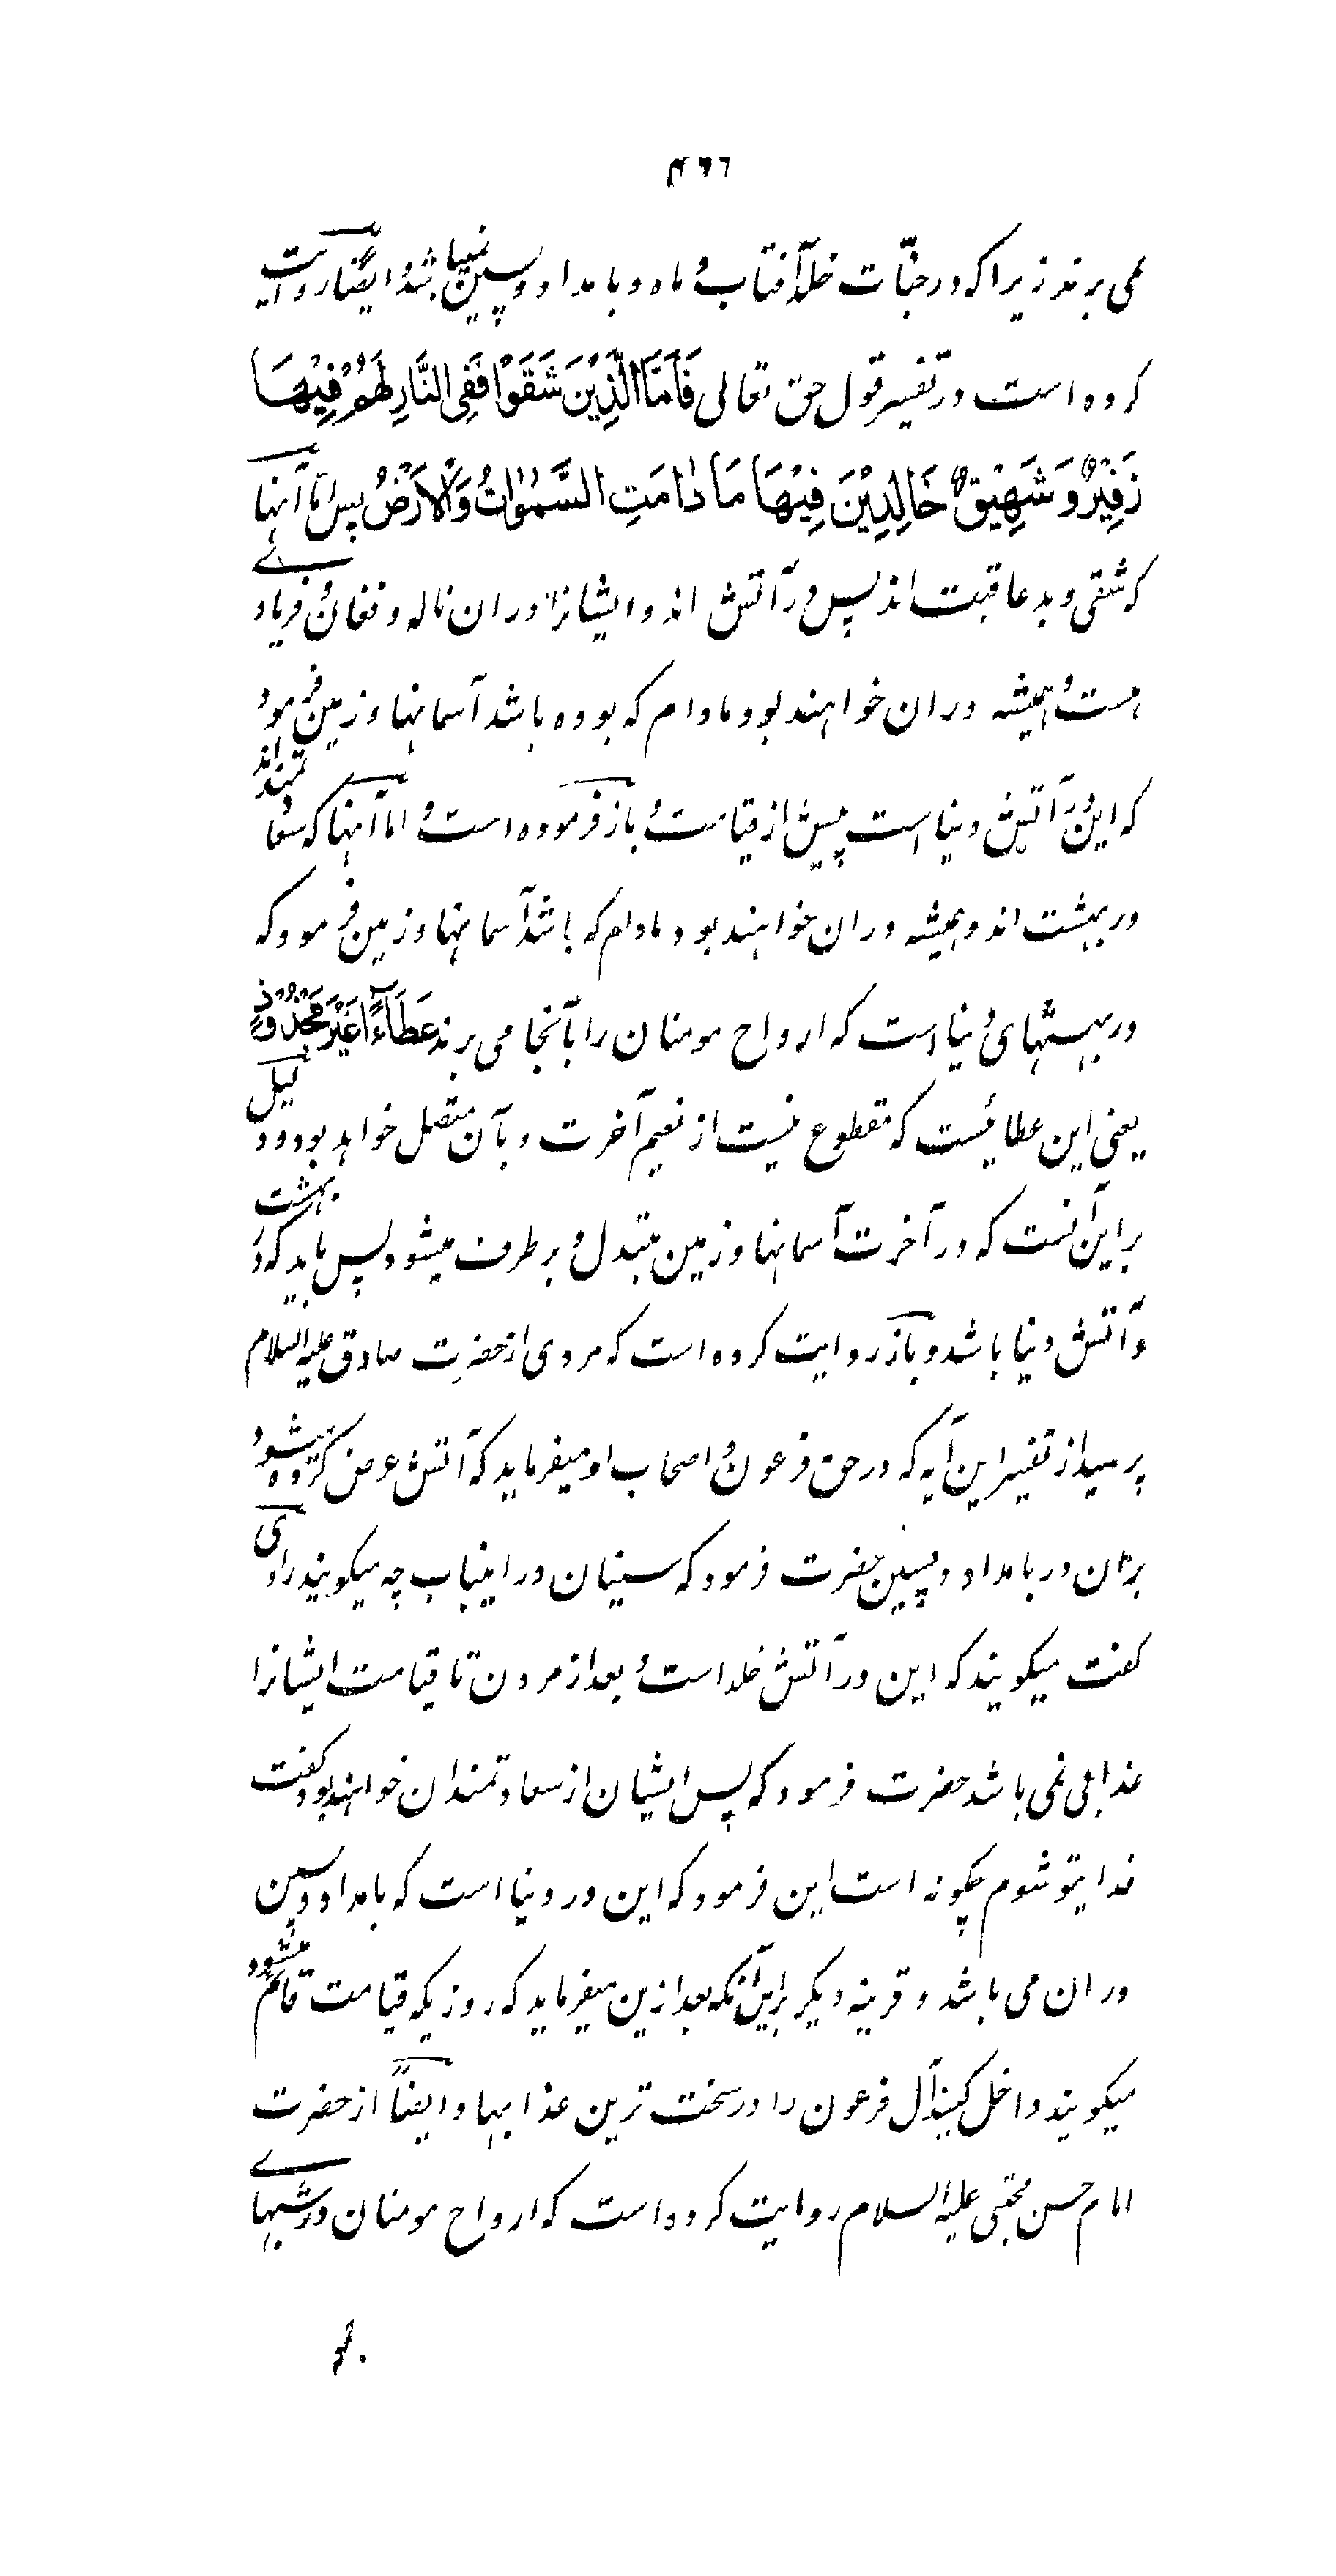 ۴۶۶
می برند زیرا که در جنّات خلد آفتاب و ماه و بامداد و پسین نمیباشد و ایضًا روایت
کرده است در تفسیر قول حق تعالی فَاَمَّا الَّذِیْنَ شَقَوْا فَفِی النَّارِ لَهُمْ فِیْهَا
زَفِیْرٌ وَ شَهِیْقٌ خَالِدِیْنَ فِیْهَا مَا دَامَتِ السَّمٰوَاتُ وَالْاَرْضُ پس اما آنهائے
که شقی و بد عاقبت اند پس در آتش اند و ایشانرا دران ناله و فغان و فریاد
هست و همیشه دران خواهند بود مادام که بوده باشد آسمانها و زمین فرمود
که این در آتش دنیا است پیش از قیامت و باز فرموده است و اما آنها که سعادتمند اند
در بهشت اند و همیشه دران خواهند بود مادام که باشد آسمانها و زمین فرمود که
در بهشتهای دنیا است که ارواح مومنان را بآنجا می برند عَطَآءً غَیْرَ مَجْذُوْذٍ
یعنی این عطائیست که مقطوع نیست از نعیم آخرت و بآن متصل خواهد بود و دلیل
براین آنست که در آخرت آسمانها و زمین متبدل و بر طرف میشود پس باید که در بهشت
و آتش دنیا باشد و باز روایت کرده است که مردی از حضرت صادق علیه السلام
پرسید از تفسیر این آیه که در حق فرعون و اصحاب او میفرماید که آتش عرض کرده میشود
بران در بامداد و پسین حضرت فرمود که سنیان در اینباب چه میکویند راوی
کفت میکویند که این در آتش خلد است و بعد از مردن تا قیامت ایشانرا
عذابی نمی باشد حضرت فرمود که پس ایشان از سعادتمندان خواهند بود کفت
فدایتو شوم چکونه است این فرمود که این در دنیا است که بامداد و پسین
دران می باشد و قرینه دیکر براین آنکه بعد ازین میفرماید که روزیکه قیامت قائم میشود
میکویند داخل کنید آل فرعون را در سخت ترین عذابها و ایضًا از حضرت
امام حسن مجتبی علیه السلام روایت کرده است که ارواح مومنان در شبهائے